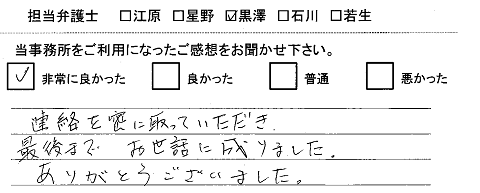 担当弁護士 □江原 □星野 ☑黒澤 □石川 □若生
当事務所をご利用になったご感想をお聞かせ下さい。
☑ 非常に良かった □ 良かった □ 普通 □ 悪かった
連絡を密に取っていただき、
最後まで お世話に成りました。
ありがとうございました。